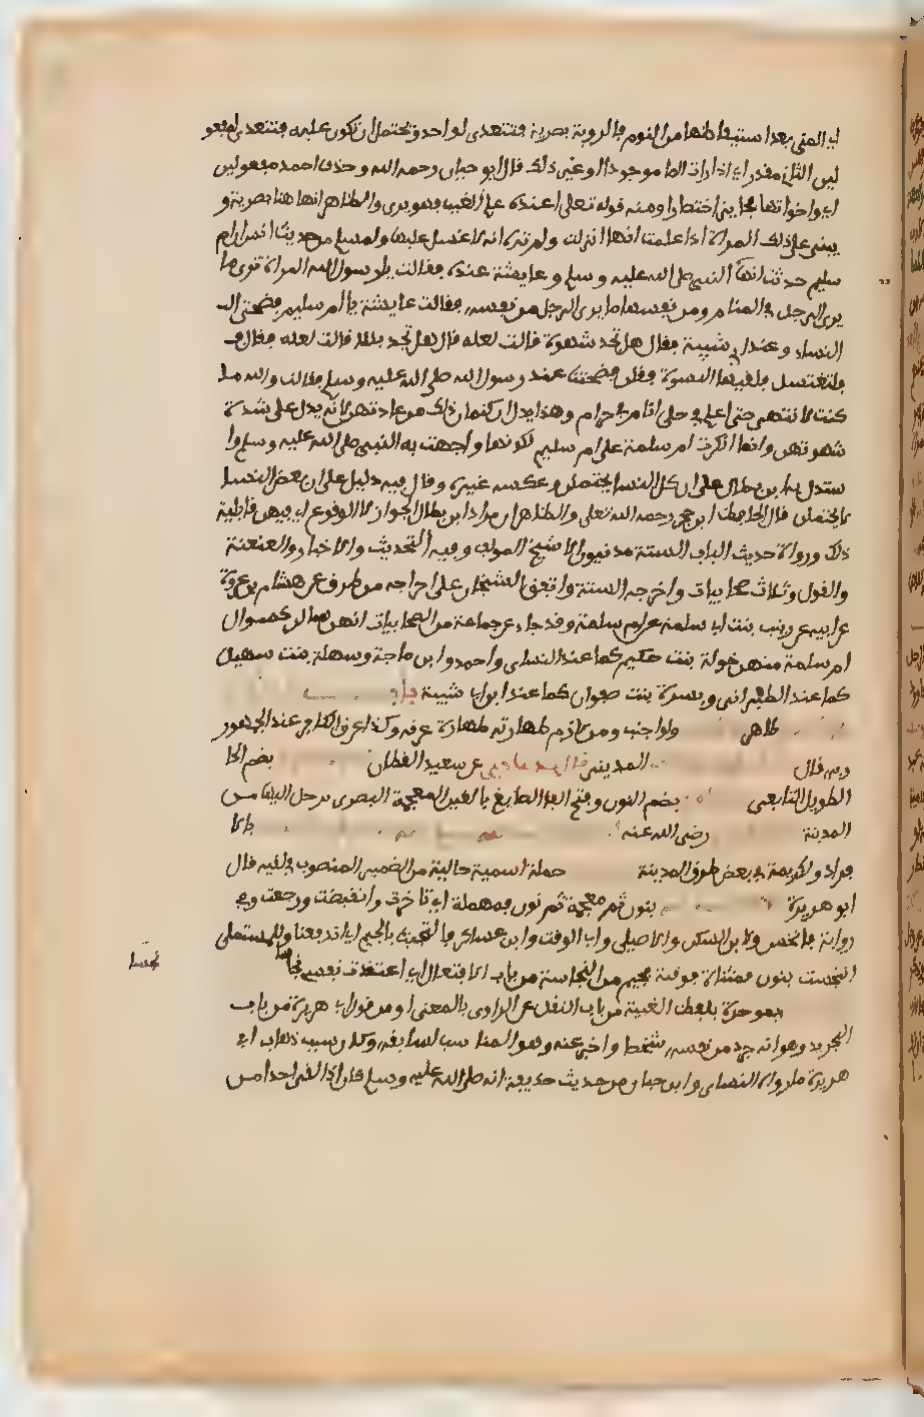 اي المني بعد استيقاظها من النوم فالروية بصرية فتتعدى لواحد ويحتمل ان تكون علمية فتتعدى لمفعو
لين الثاني مقدر اي اذا رات الما موجودا او غير ذلك قال ابو حيان رحمه الله وحذف احد مفعولين
اي واخواتها بجايز اختصارا ومنه قوله تعلى اعنده علم الغيب فهو يرى والظاهر انها هنا بصرية و
يبنى على ذلك المراة اذا علمت انها انزلت ولم تره انه لا غسل عليها ولمسلم من حديث انس ان ام
سليم حدثت انها النبي صلى الله عليه وسلم وعايشة عنده فقالت يا رسول الله المراة ترى ما
يرى الرجل في المنام ومن نفسها ما يرى الرجل من نفسه فقالت عايشة يا ام سليم فضحتي الـ
النساء وعند ابن ابي شيبة فقال هل تجد شهوة قالت لعله قال هل تجد بللا قالت لعله فقال فـ
فلتغتسل فلقيها النسوة وقلن فضحتنا عند رسول الله صلى الله عليه وسلم فقالت والله ما
كنت لانتهى حتى اعلم في حل انا ام في حرام وهذا يدل ان كتمان ذلك من عادتهن لانه يدل على شدة
شهوتهن وانما انكرت ام سلمة على ام سليم لكونها واجهت به النبي صلى الله عليه وسلم وا
ستدل به ابن بطال على ان كل النسا يحتلمن وعكسه غيره وقال فيه دليل على ان بعض النسا
لا يحتلمن قال الحافظ ابن حجر رحمه الله تعلى والظاهر ان مراد ابن بطال الجواز لا الوقوع اي فيهن قابلية
ذلك ورواة حديث الباب الستة مدنيون الا شيخ المولف وفيه التحديث والاخبار والعنعنة
والقول وثلاث صحابيات واخرجه الستة واتفق الشيخان على اخراجه من طرق عن هشام بن عروة
عن ابيه عن زينب بنت ابي سلمة عن ام سلمة وقد جاء عن جماعة من الصحابيات انهن سالن كسوال
ام سلمة منهن خولة بنت حكيم كما عند النساى واحمد وابن ماجة وسهلة بنت سهيل
كما عند الطبراني وبسرة بنت صفوان كما عند ابن ابي شيبة باب
طاهر ولو اجنب ومن لازم طهارته طهارة عرقه وكذا عرق الكافر عند الجمهور
وبه قال المديني قال حدثنا يحيى بن سعيد القطان بضم الحا
الطويل التابعي بضم النون وفتح الفا الصايغ بالغين المعجمة البصرى نزحل اليها من
المدينة رضى الله عنه بالا
فراد ولكريمة في بعض طرق المدينة جملة اسمية حالية من الضمير المنصوب في لقيه قال
ابو هريرة بنون ثم معجمة ثم نون فمهملة اي تاخرت وانقبضت ورجعت وفي
رواية فانخنس ولابن السكن والاصيلي وابي الوقت وابن عساكر فانبجست بالجيم اي اندفعت وللمستملي
انتجست بنون فمثناة فوقية فجيم من النجاسة من باب الافتعال اي اعتقدت نفسي نجاسا
نجسا
بموحدة بلفظ الغيبة من باب النقل عن الراوي بالمعنى او من قول ابي هريرة من باب
التجريد وهو انه جرد من نفسه شخصا واخبر عنه وهو المناسب لسابقه وكان سبب ذهاب ابي
هريرة ما رواه النساى وابن حبان من حديث حذيفة انه صلى الله عليه وسلم كان اذا لقي احدا من